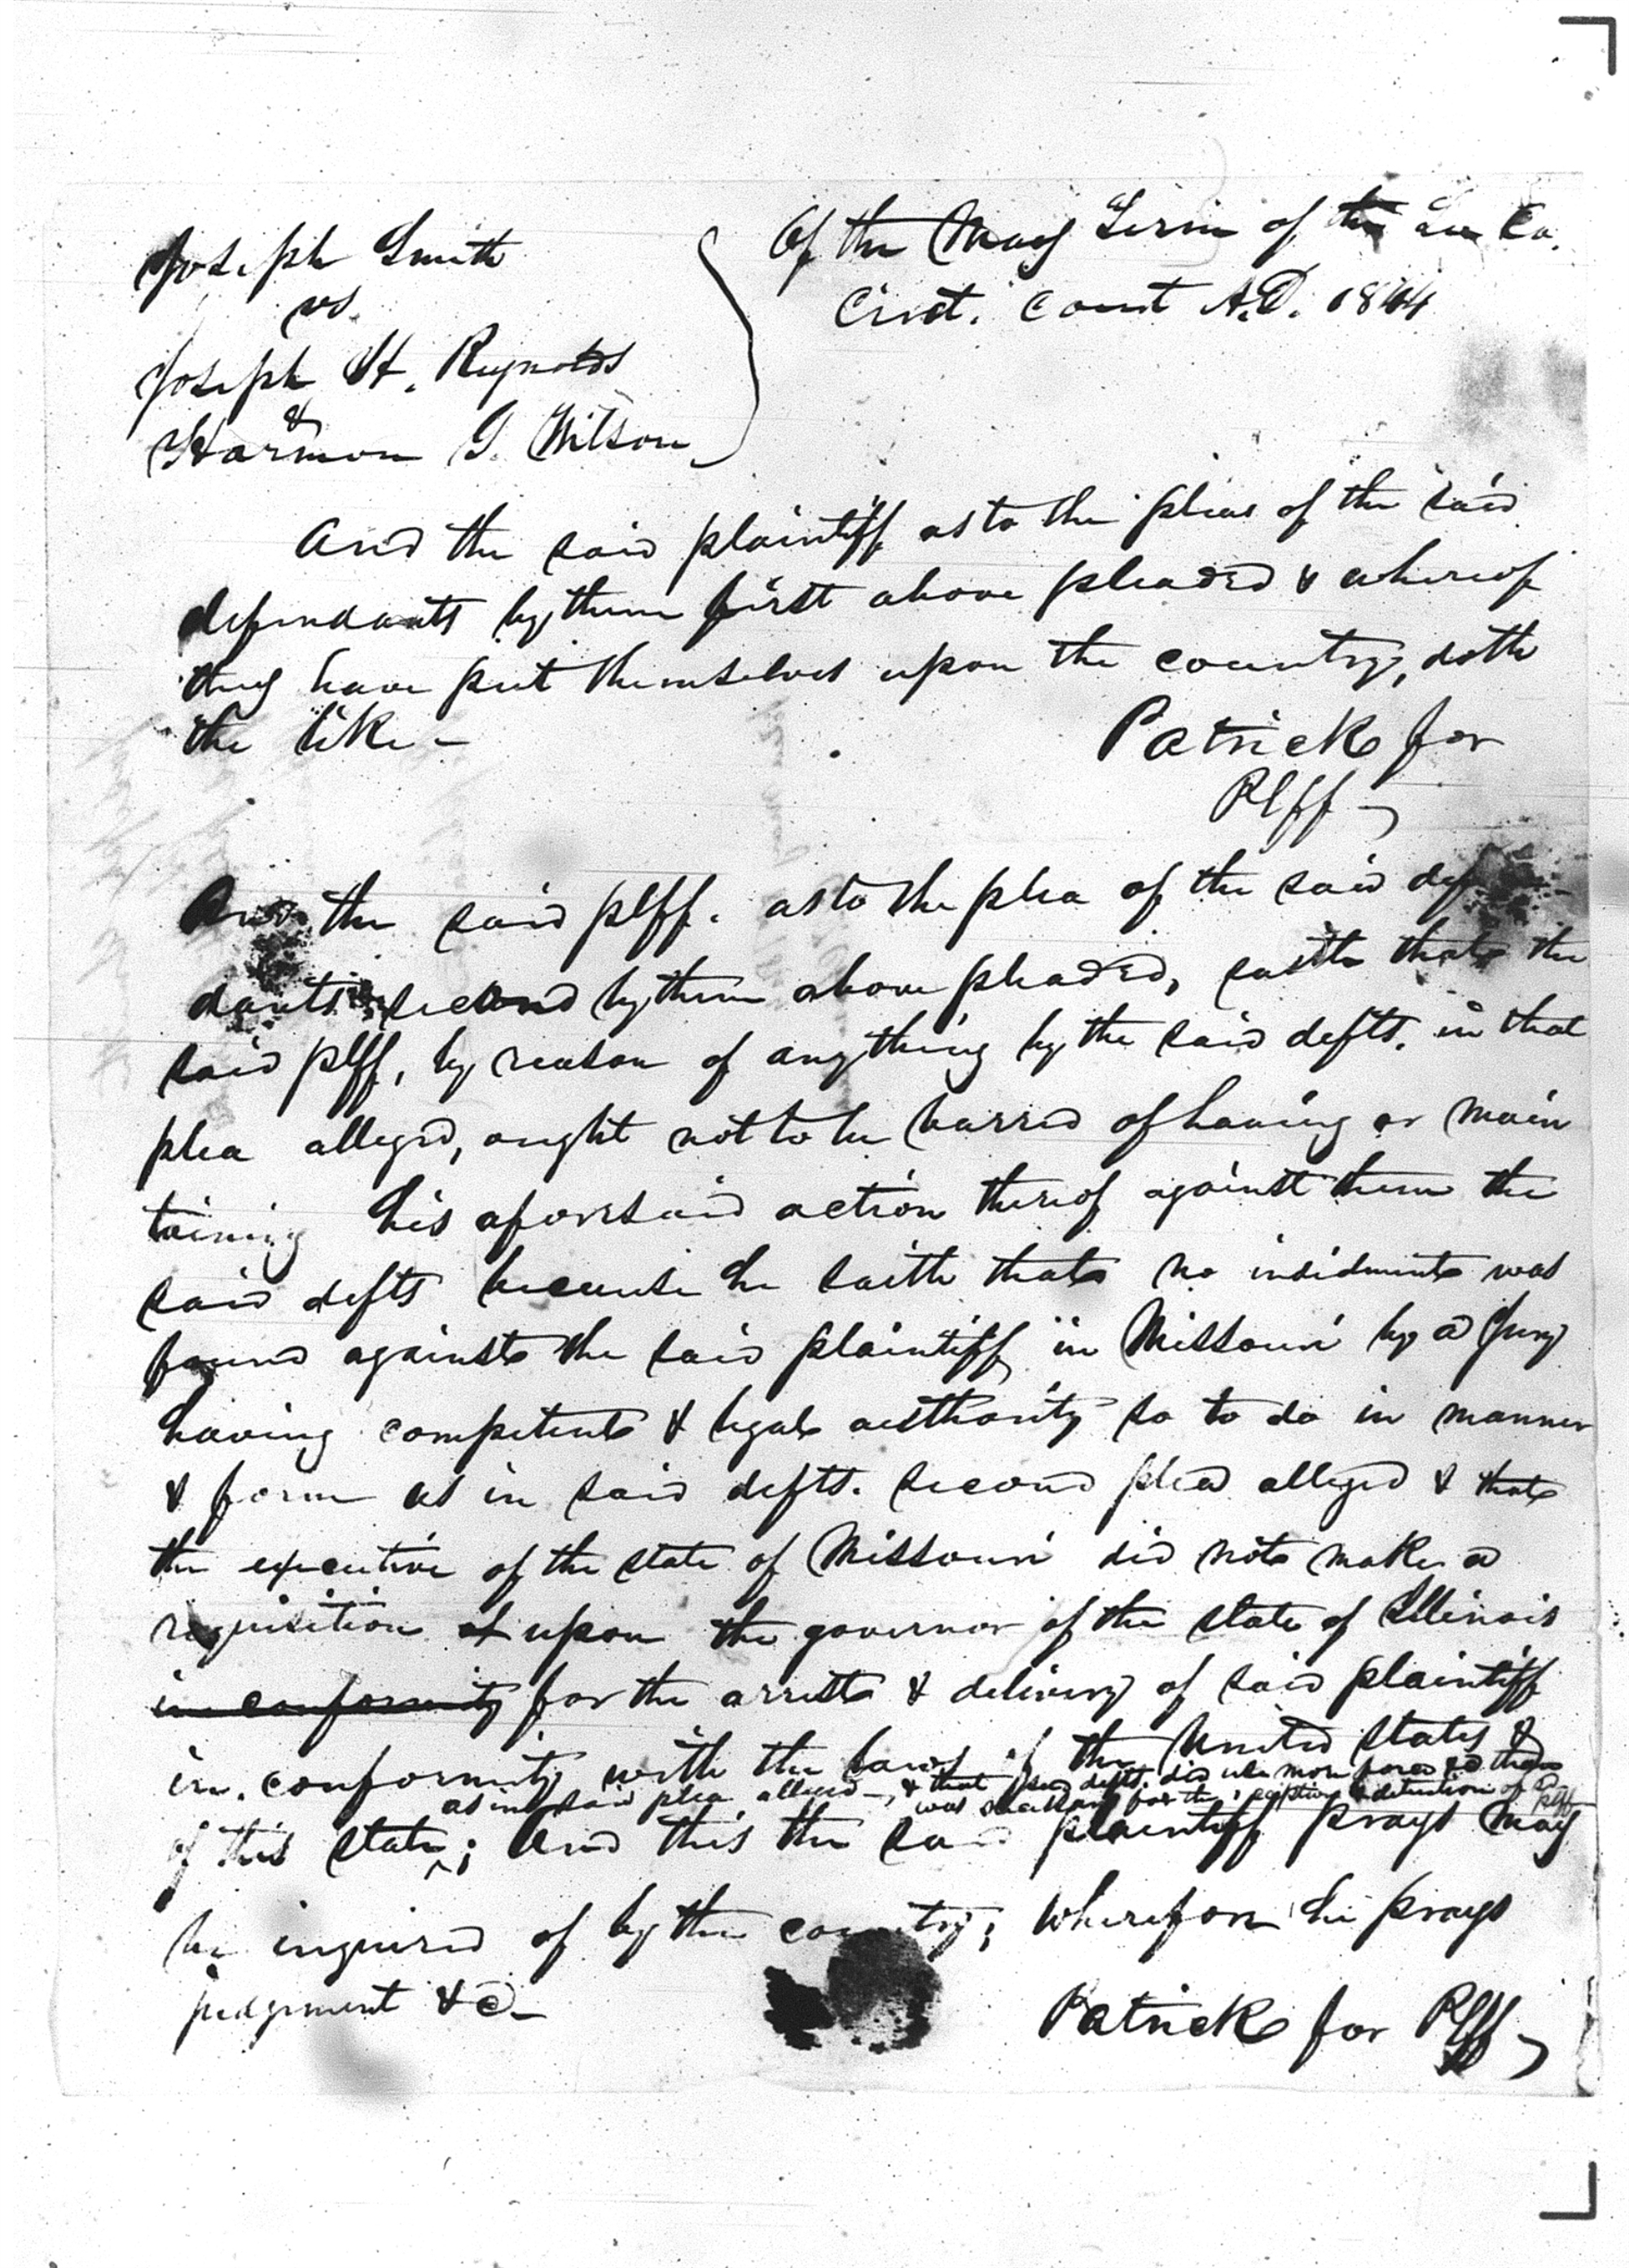 Joseph Smith
vs.
Joseph H. Reynolds
&
Harmon T. Wilson
Of the May Term of the Lee Co.
Circt. Court A.D. 1844
And the said plaintiff as to the pleas of the said
defendants by them first above pleaded & whereof
they have put themselves upon the country, doth
the like –
Patrick for
Plff
And the said plff. as to the plea of the said defen-
dants second by them above pleaded, saith that the
said plff, by reason of anything by the said defts. in that
plea alleged, ought not to be barred of having or main
taining his aforesaid action thereof against them the
said defts because he saith that no indidment was
found against the said plaintiff in Missouri by a Jury
having competent & legal authority so to do in manner
& form as in said defts. second plea alleged & that
the executive of the state of Missouri did not make a
requisition upon the governor of the state of Illinois
in conformity for the arrest & delivery of said plaintiff
in conformity with the laws of the United States &
as in said plea alleged –, & that said defts. did use more force than
was necessary for the detention of Plff
of this state ^; And this the said plaintiff prays may
be inquired of by the country; Wherefore he prays
judgment &c –
Patrick for Plff